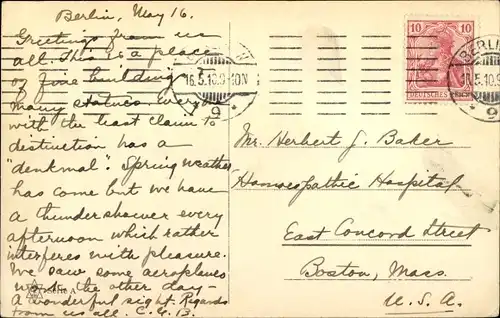 Berlin, May 16.
Greetings from us
all. This is a place
of fine building
many statues. Every
with the least claim to
distinction has a
"denkmal". Spring weather
has come but we have
a thundershower every
afternoon which rather
interferes with pleasure.
We saw some aeroplanes
the other day –
A wonderful sight. Regards
from us all. C. G. B.
Serie A
BERLIN
16.5.10.9-10N
9
10 10
DEUTSCHES REICH
BERLIN
9
Mr. Herbert J. Baker
Homoeopathic Hospital
East Concord Street
Boston, Mass.
U.S.A.